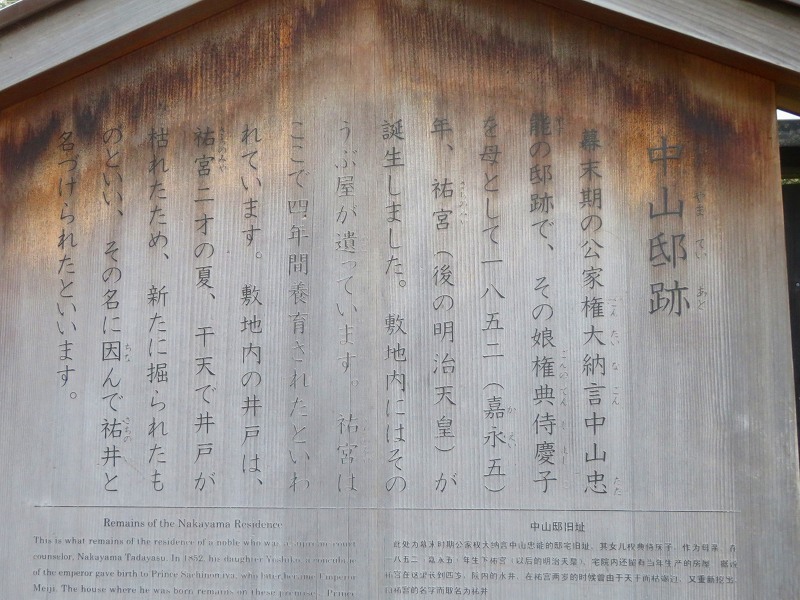 中山邸跡
幕末期の公家権大納言中山忠
能の邸跡で、その娘権典侍慶子
を母として一八五二(嘉永五)
年、祐宮(後の明治天皇)が
誕生しました。敷地内にはその
うぶ屋が遺っています。祐宮は
ここで四年間養育されたといわ
れています。敷地内の井戸は、
祐宮二才の夏、干天で井戸が
枯れたため、新たに掘られたも
のといい、その名に因んで祐井と
名づけられたといいます。
Remains of the Nakayama Residence
This is what remains of the residence of a noble who was a supreme court
counselor, Nakayama Tadayasu. In 1852, his daughter Yoshiko, a concubine
of the emperor gave birth to Prince Sachinomiya, who later became Emperor
Meiji. The house where he was born remains on these premises. Prince
中山邸旧址
此处为幕末时期公家权大纳言中山忠能的邸宅旧址。其女儿权典侍庆子、作为母亲、在
一八五二(嘉永五)年生下祐宫(以后的明治天皇)。宅院内还留有当年生产的房屋。
宫在这里长到四岁。院内的水井、在祐宫两岁的时候曾由于天干而枯竭过、又重新挖
祐宫的名字而取名为祐井